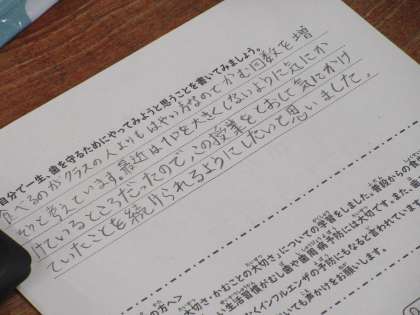 自分で一生、歯を守るためにやってみようと思うことを書いてみましょう。
食べるのがクラスの人よりもはやい方なのでかむ回数を増
そうと考えています。最近は一口を大きくしないように気にか
けているところだったので、この授業をとおして気にかけ
ていたことを続けられるようにしたいと思いました。
の方へ
大切さ・かむことの大切さ」についての学習をしました。普段からの
い生活習慣がむし歯や歯周病予防には大切です。また、
くインフルエンザの予防にもなると言われています
いても声かけをお願いします。